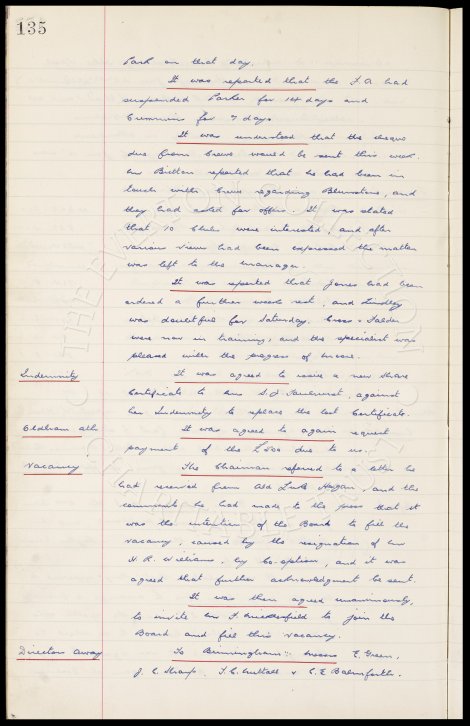 135
Park on that day.
It was reported that the F.A. had
suspended Parker for 14 days and
Cummins for 7 days
It was understood that the cheque
due from Crewe would be sent this week.
Mr Britton reported that he had been in
touch with Crewe regarding Blunstone, and
they had asked for offers. It was stated
that 10 Clubs were interested, and after
various views had been expressed the matter
was left to the manager.
It was reported that Jones had been
ordered a further weeks rest, and Lindley
was doubtful for Saturday. Cross &
were now in training, and the specialist was
pleased with the progress of
Indemnity
It was agreed to issue a new Share
Certificate to Mrs S.J. against
her Indemnity to replace the lost Certificate.
Oldham Ath.
It was agreed to again request
payment of the £500 due to us.
Vacancy
The Chairman referred to a letter he
had received from Ald Luke Hogan, and the
comments he had made to the press that it
was the intention of the Board to fill the
vacancy, caused by the resignation of Mr
H.R. Williams, by Co-option, and it was
agreed that further acknowledgment be sent.
It was then agreed unanimously,
to invite Mr F. Micklesfield to join the
Board and fill this vacancy.
Directors away
To Birmingham:- Messrs E. Green,
J.C. Sharp. T.C. Nuttall & C.E. Balmforth.
THE EVERTON COLLECTION
CHARITABLE TRUST